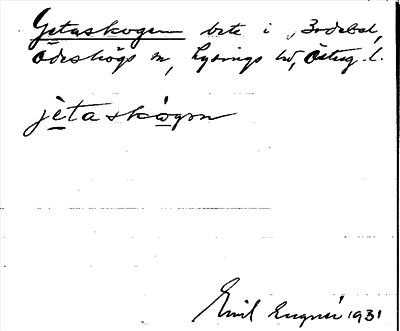 Getaskogen bete i Bodebol,
Ödeshögs sn, Lysings hd, Östergl.
jètaskògən
Emil Engnér 1931